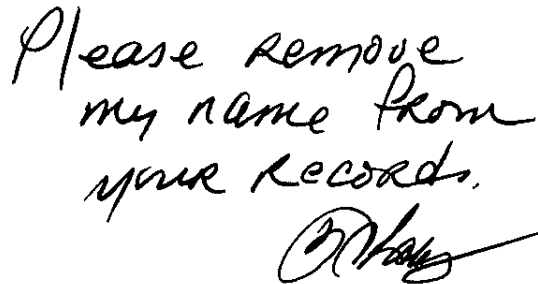 Please remove
my name from
your records.